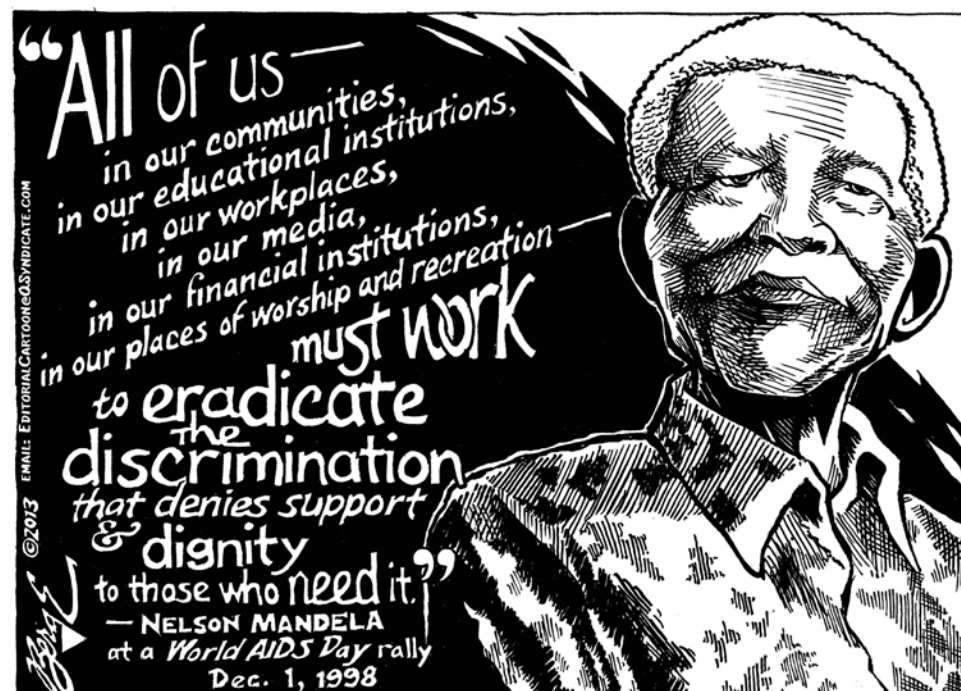 “All of us—
in our communities,
in our educational institutions,
in our workplaces,
in our media,
in our financial institutions,
in our places of worship and recreation—
must work
to eradicate
the
discrimination
that denies support
& dignity
to those who need it.”
— NELSON MANDELA
at a World AIDS Day rally
Dec. 1, 1998
©2013 EMAIL: EDITORIALCARTOON@QSYNDICATE.COM